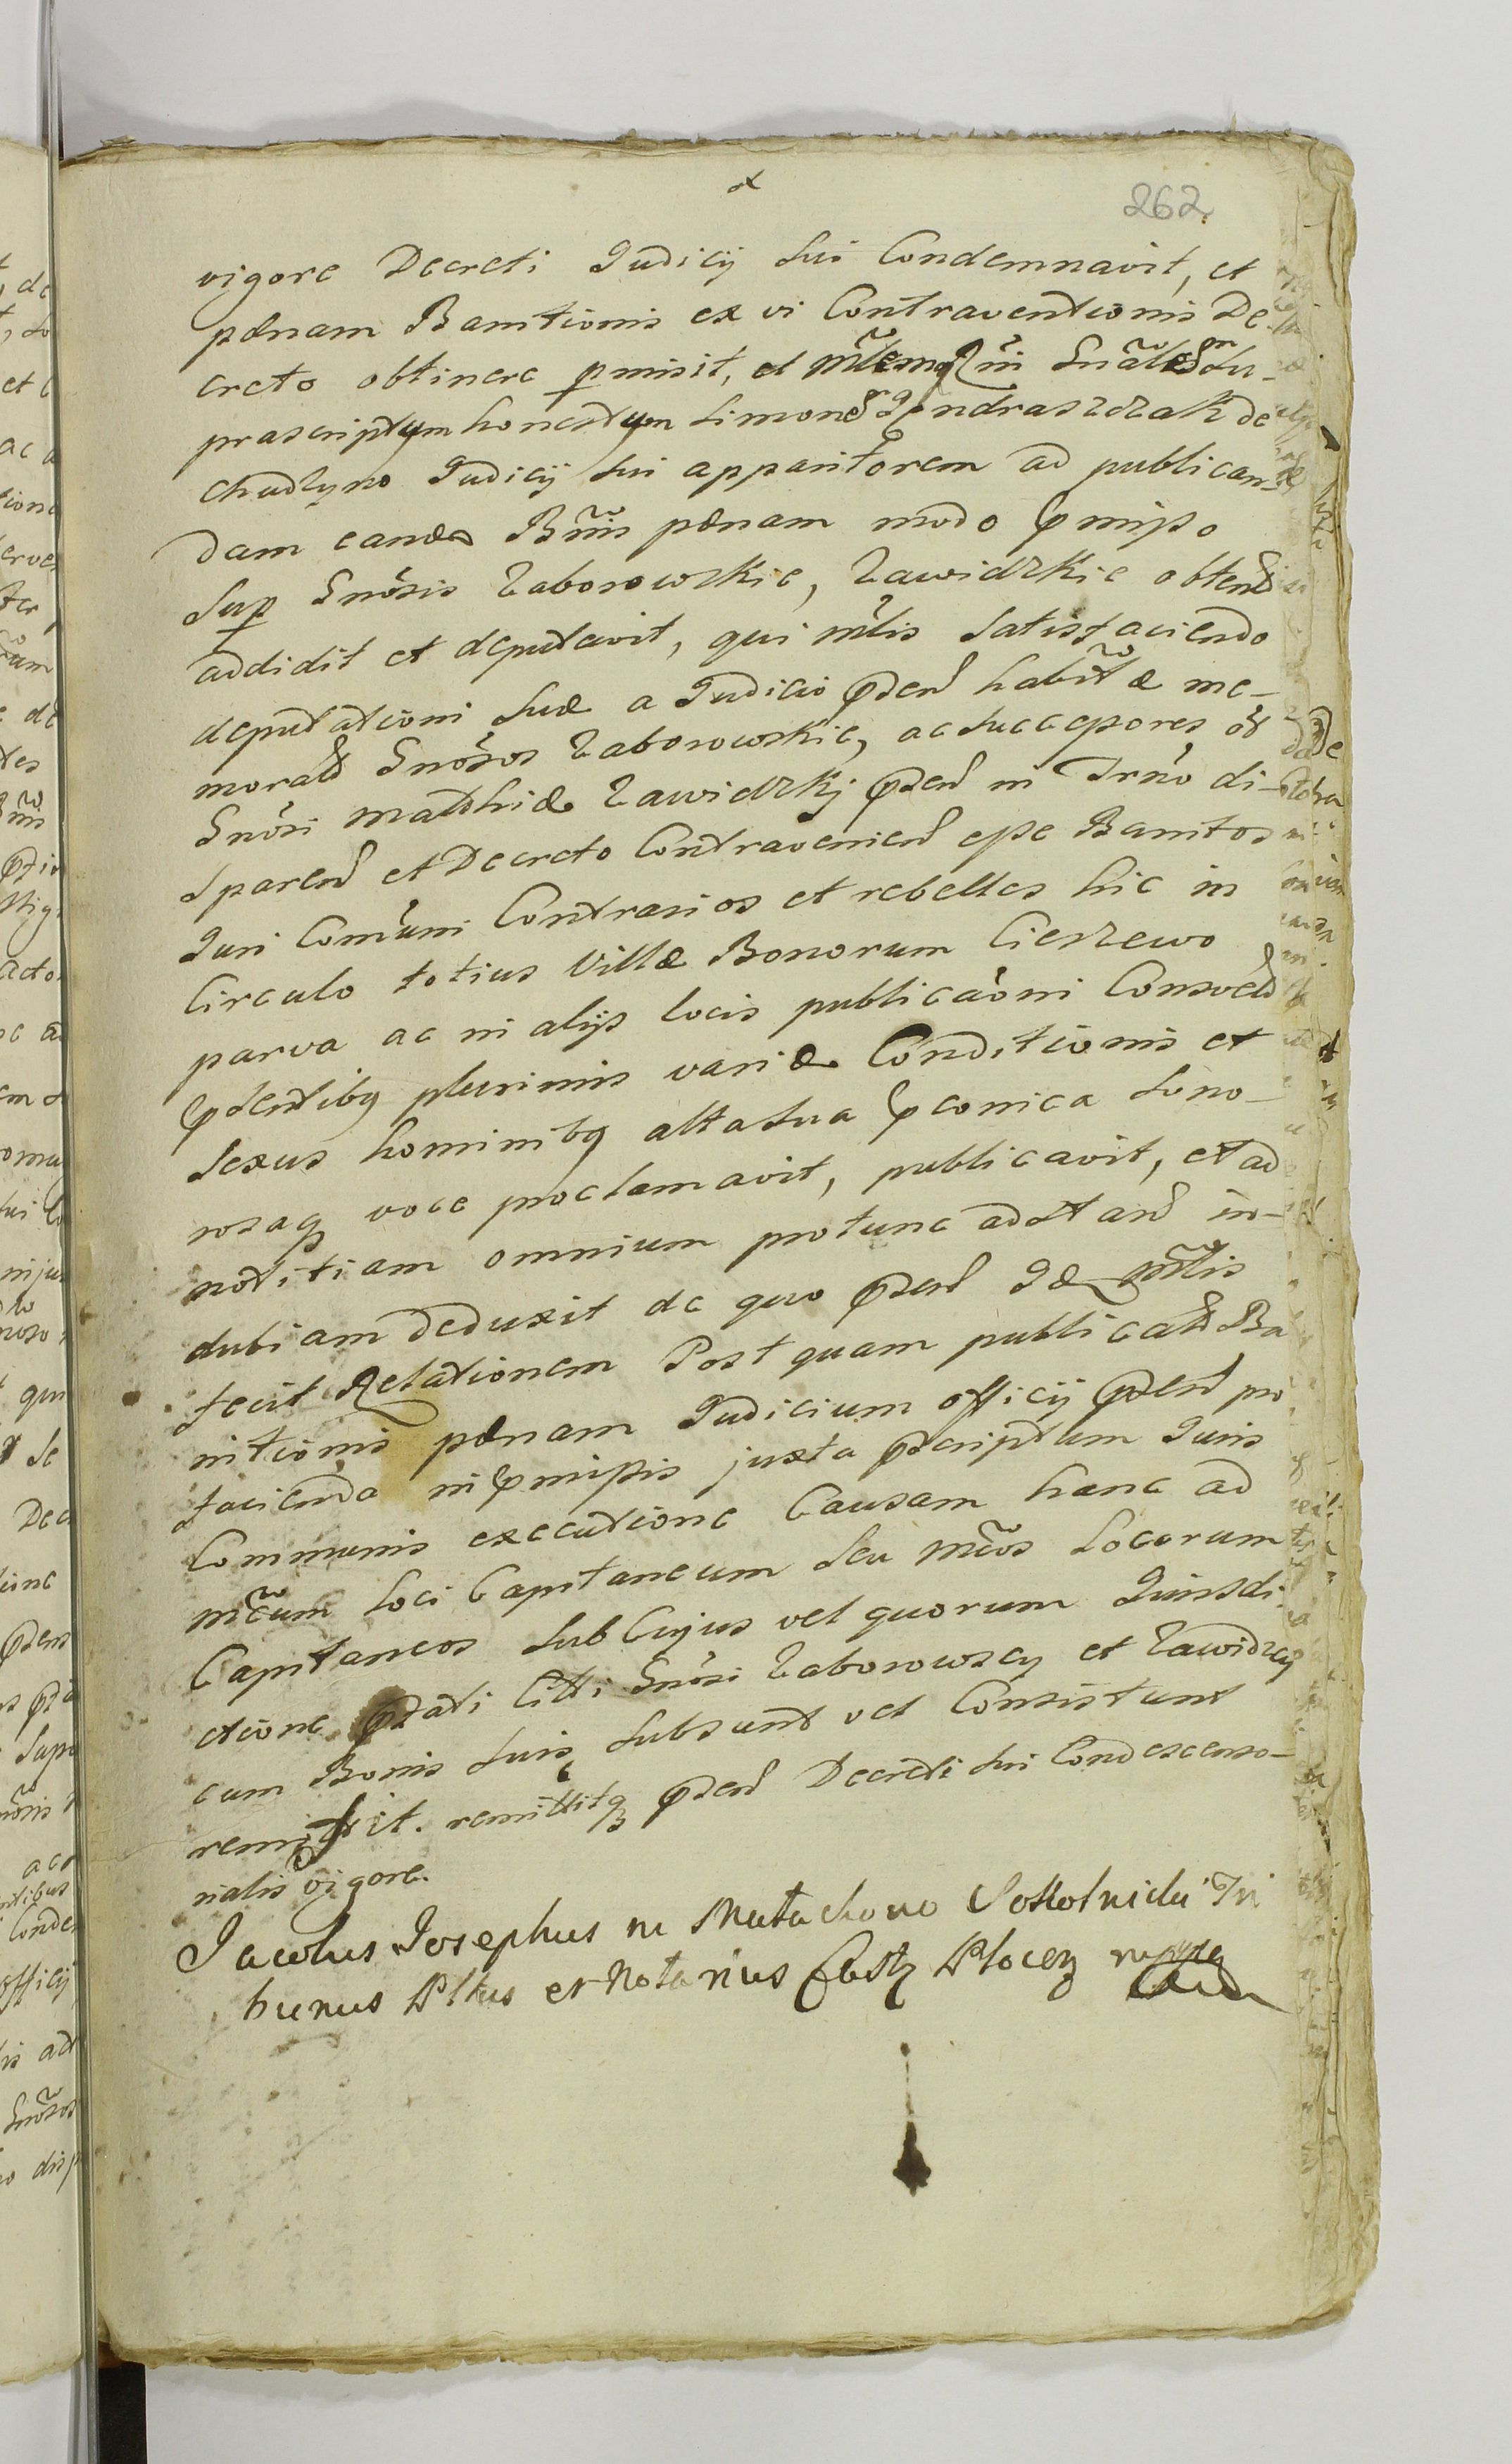 262
vigore Decreti Judicij sui Condemnavit, et
pœnam Banitionis ex vi Contraventionis De-
creto obtinere pmisit, et Mlem Rni Gnalem Su-
prascriptum honestum Simonem Jendraszczak de
chudzyno Judicij sui apparitorem ad publican-
dam eande Bnnis pœnam modo pmisso
sup Gnosis Zaborowskie, Zawidzkie obtend
addidit et deputavit, qui mlis satisfaciendo
deputationi suæ a Judicio psend habitæ me-
morat Gnosos Zaborowskie, ac successores ol
Gnosi Matthiæ Zawidzkj psend in Trno di-
sparend et Decreto Contraveniend esse Banitos
Juri Comuni Contrarios et rebelles hic in
Circulo totius Villæ Bonorum Cieszewo
parva ac in alijs locis publicaoni Consvet
psentibq plurimis variæ Conditionis et
sexus hominibq alta sua pconica sono-
rosaq voce proclamavit, publicavit, et ad
notitiam omnium protunc adstand in-
dubiam deduxit de quo psend Id mlis
fecit Relationem Post quam publicat Ba
nitionis pœnam Judicium officij psend pro
facienda in pmissis juxta pscriptum Juris
Communis executione Causam hanc ad
Mcum loci Capitaneum seu Mcos Locorum
Capitaneos sub Cujus vel quorum Jurisdi-
ctione psati Citti Gnosi Zaborowscy et Zawidzcy
cum Bonis suis subsunt vel Consistunt
remisit. remittitq psend Decreti sui Condescenso-
rialis vigore.
Jacobus Josephus in Matachowo Sokolnicki Tri
bunus Pltus et Notarius Cast Plocen mppa